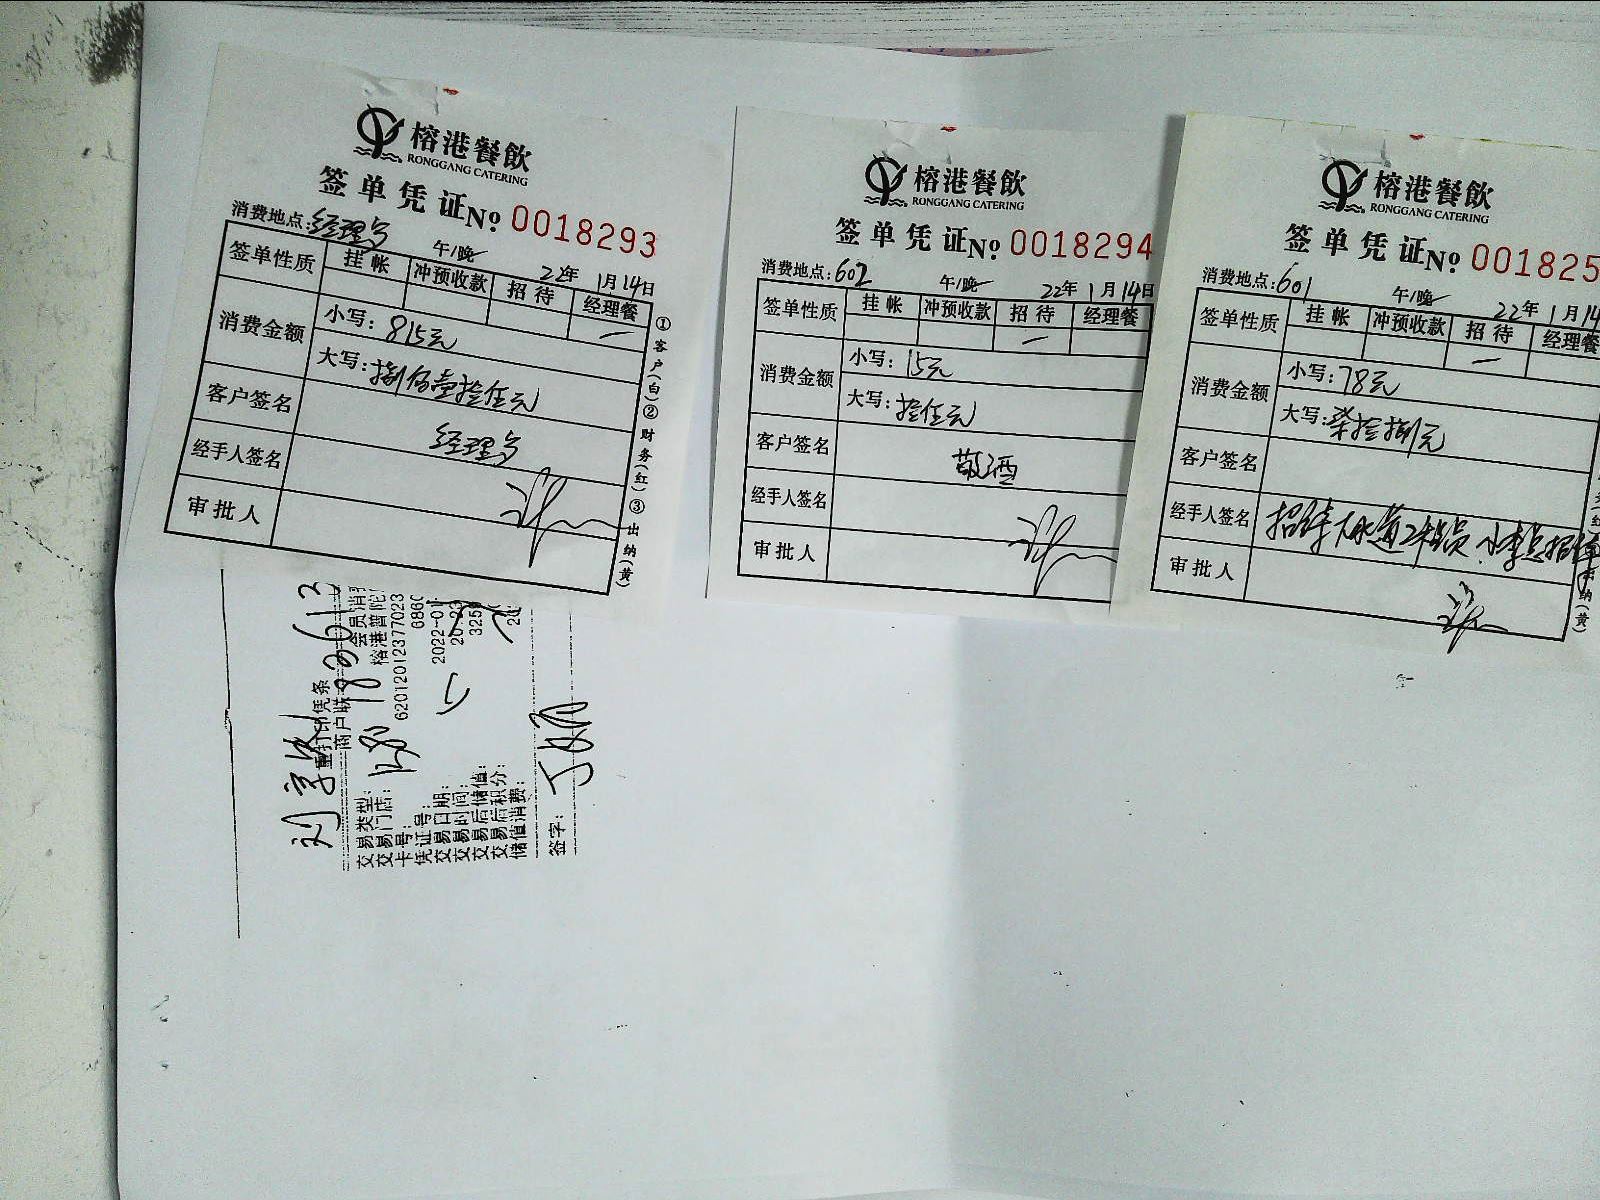 榕港餐飲
RONGGANG CATERING
签单凭证 No 0018293
消费地点:经理步
午/晚 22年1月14日
签单性质 挂帐 冲预收款 招待 经理餐
消费金额
小写:815元
大写:捌佰壹拾伍元
客户签名
经理步
经手人签名
审批人
①客户(白)②财务(红)③出纳(黄)
榕港餐飲
RONGGANG CATERING
签单凭证 No 0018294
消费地点:602
午/晚 22年1月14日
签单性质 挂帐 冲预收款 招待 经理餐
消费金额
小写:15元
大写:拾伍元
客户签名
敬酒
经手人签名
审批人
榕港餐飲
RONGGANG CATERING
签单凭证 No 001825
消费地点:601
午/晚 22年1月14
签单性质 挂帐 冲预收款 招待 经理餐
消费金额
小写:78元
大写:柒拾捌元
客户签名
经手人签名
招待下水道工作人员
审批人
纳(黄)
重打印凭条
商户联
交易类型: 会员消费
交易门店: 榕港普陀
卡号: 62012012377023
凭证号: 6860
交易日期: 2022-01
交易时间: 20:23
交易后储值: 325
交易后积分:
储值消费: 20
签字: